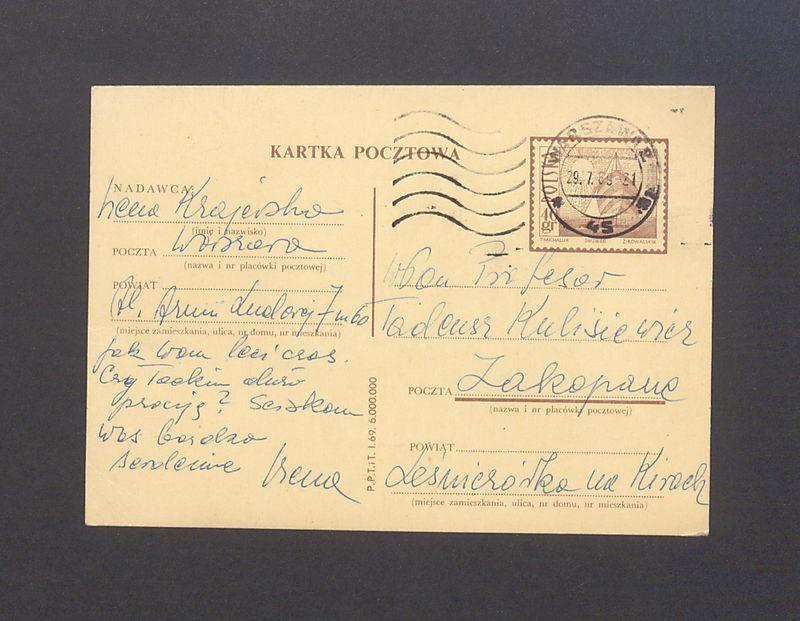 KARTKA POCZTOWA
NADAWCA:
Irena Krajewska
(imię i nazwisko)
POCZTA Warszawa
(nazwa i nr placówki pocztowej)
POWIAT
Al. Armii Ludowej 7 m 60
(miejsce zamieszkania, ulica, nr domu, nr mieszkania)
Jak Wam leci czas.
Czy Tadkim dużo
pracują? Ściskam
Was bardzo
serdecznie Irena
P.P.T.iT. I.69. 6.000.000
WARSZAWA
29.7.69-21
45
POLSKA
40 gr
T.MICHALUK
Z.KOWALSKI
Pan Profesor
Tadeusz Kulisiewicz
POCZTA Zakopane
(nazwa i nr placówki pocztowej)
POWIAT
Leśniczówka na Kirach
(miejsce zamieszkania, ulica, nr domu, nr mieszkania)